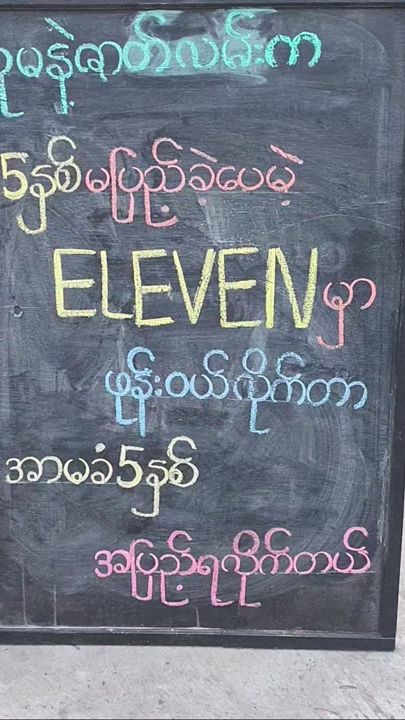 သူမနဲ့ဇာတ်လမ်းက
5နှစ်မပြည့်ခဲ့ပေမဲ့
ELEVENမှာ
ဖုန်းဝယ်လိုက်တာ
အာမခံ5နှစ်
အပြည့်ရလိုက်တယ်